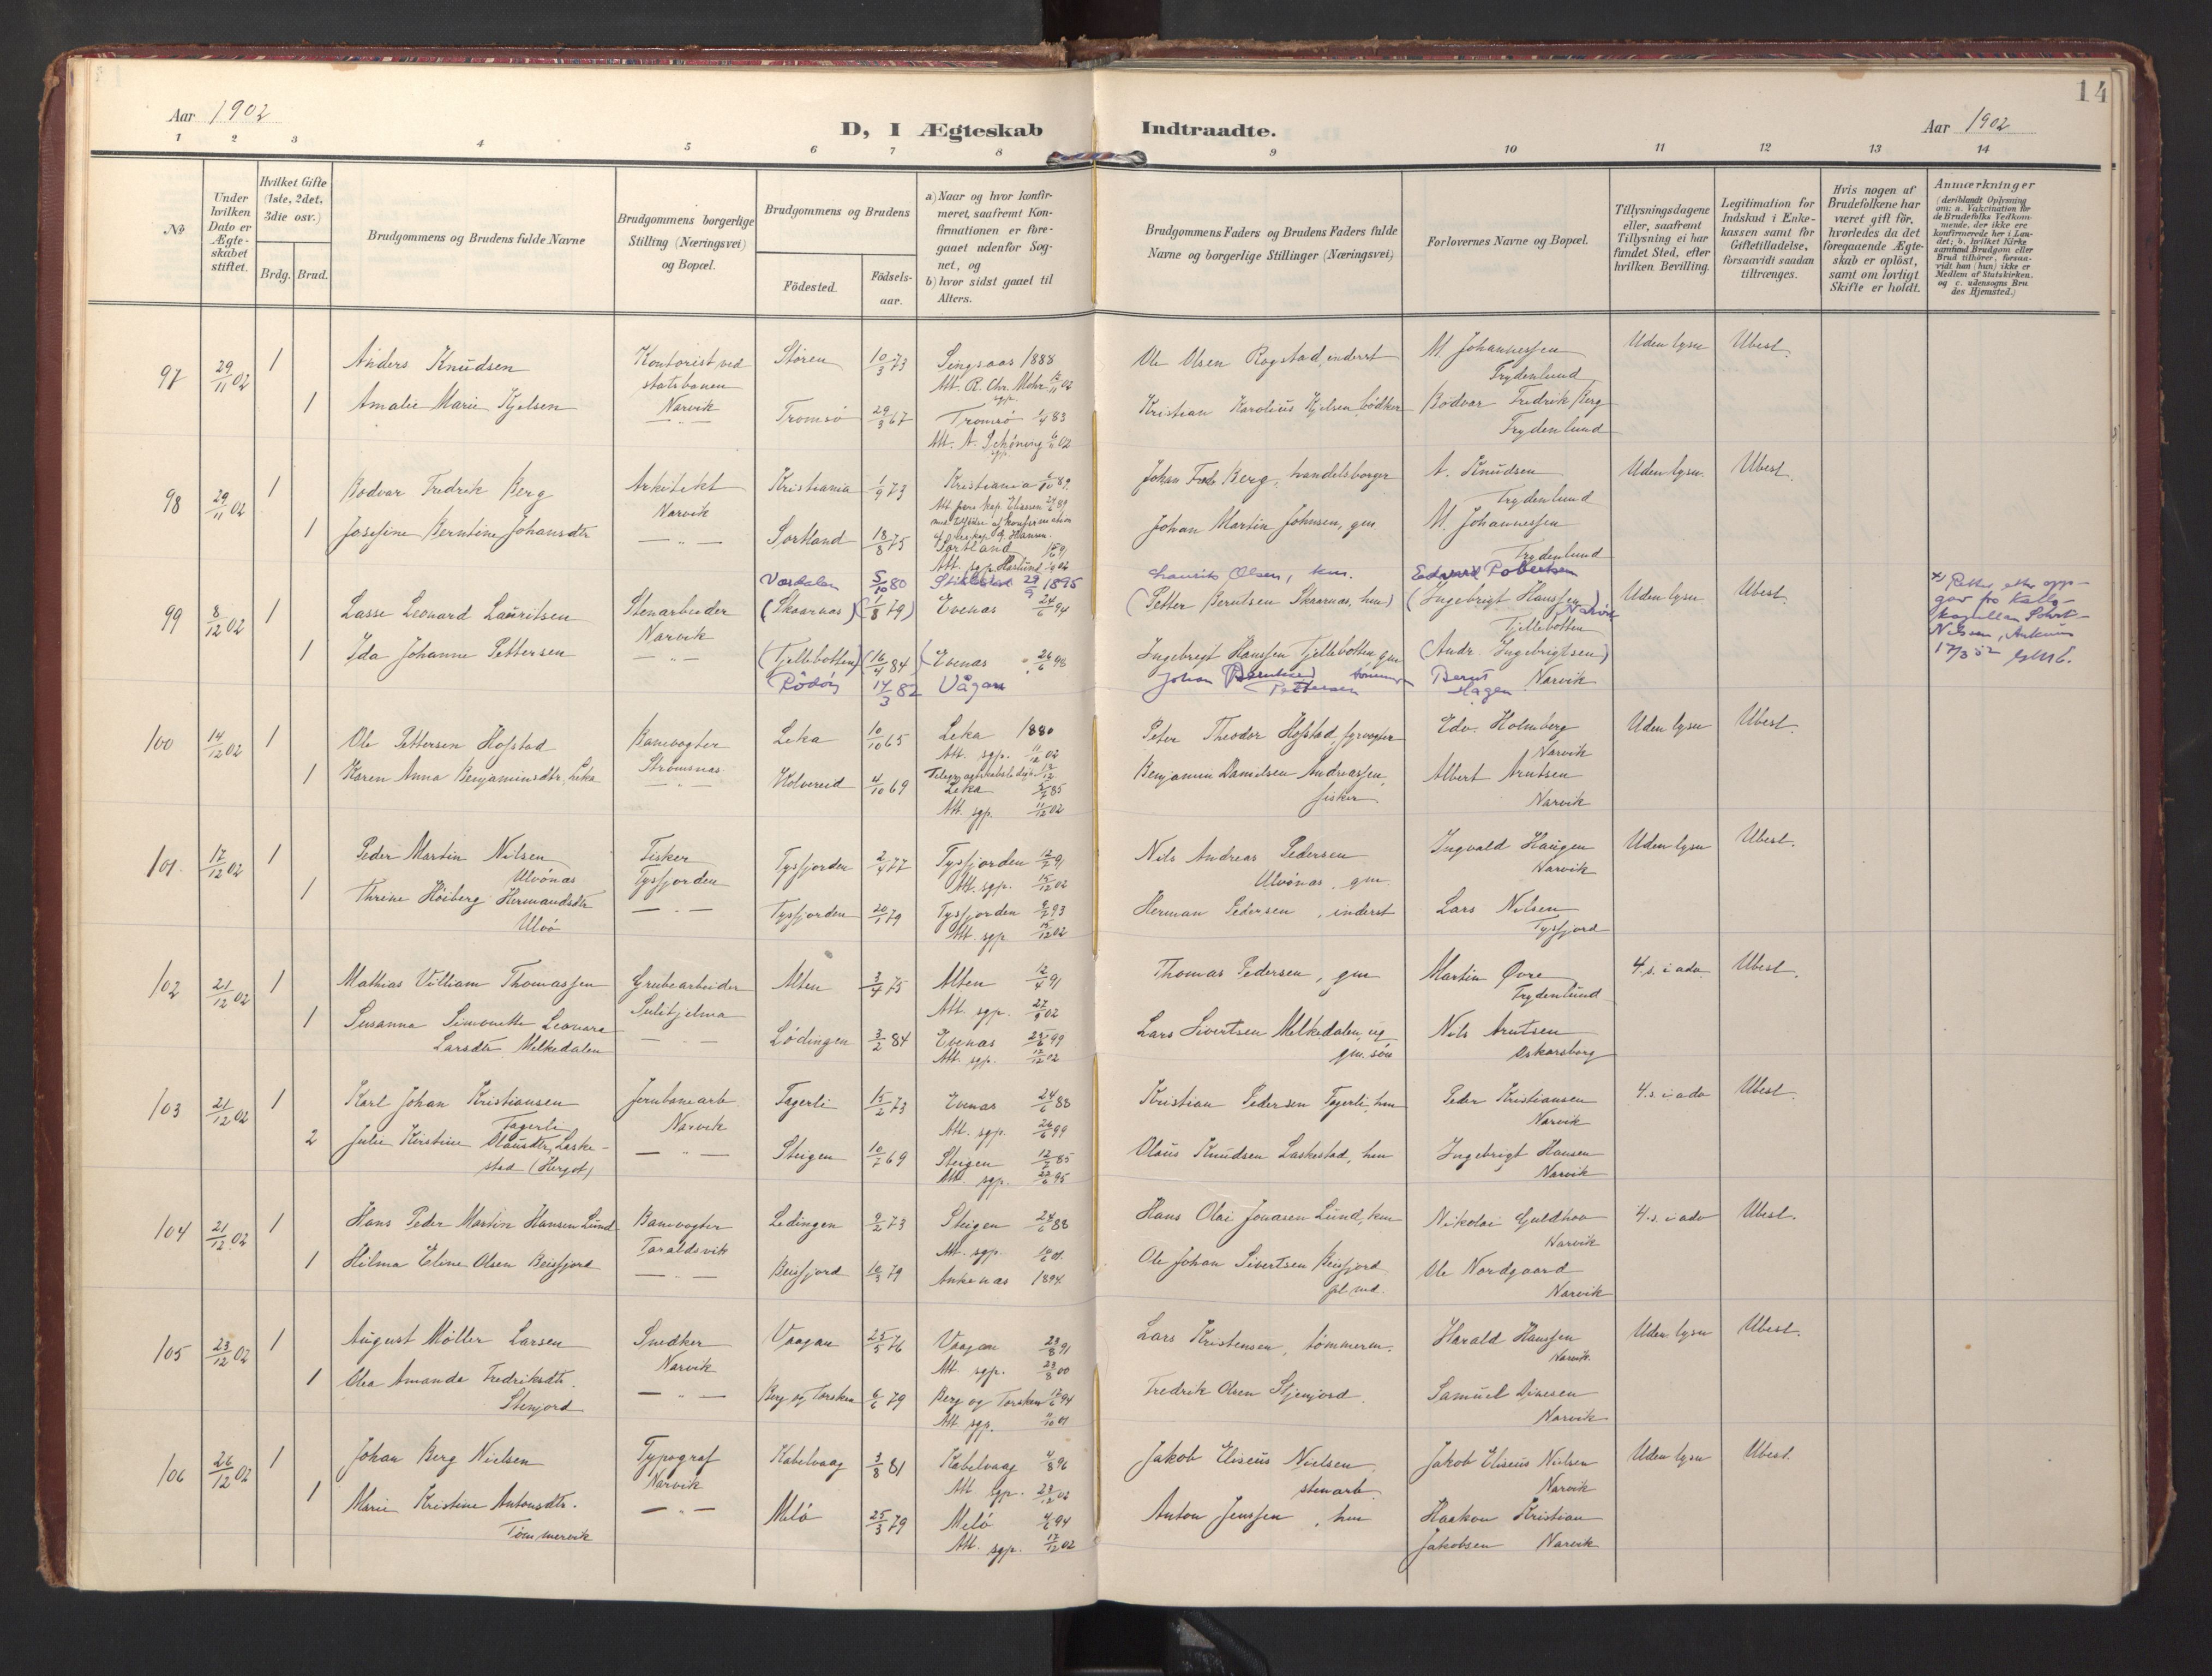 14
Aar 1902
D, I Ægteskab Indtraadte.
Aar 1902
1 2 3 4 5 6 7 8 9 10 11 12 13 14
No
Under hvilken Dato er Ægteskabet stiftet.
Hvilket Gifte (1ste, 2det, 3die osv.)
Brdg. Brud.
Brudgommens og Brudens fulde Navne
Brudgommens borgerlige Stilling (Næringsvei) og Bopæl.
Brudgommens og Brudens
Födested.
Födsels-aar.
a) Naar og hvor konfir-
meret, saafremt Kon-
firmationen er fore-
gaaet udenfor Sog-
net, og
b) hvor sidst gaaet til
Alters.
Brudgommens Faders og Brudens Faders fulde
Navne og borgerlige Stillinger (Næringsvei)
Forlovernes Navne og Bopæl.
Tillysningsdagene
eller, saafremt
Tillysning ei har
fundet Sted, efter
hvilken Bevilling.
Legitimation for
Indskud i Enke-
kassen samt for
Giftetilladelse,
forsaavidt saadan
tiltrænges.
Hvis nogen af
Brudefolkene har
været gift før,
hvorledes da det
foregaaende Ægte-
skab er oplöst,
samt om lovligt
Skifte er holdt.
Anmærkninger
(deriblandt Oplysning
om: a. Vakcination for
de Brudefolks Vedkom-
mende, der ikke ere
konfirmerede her i Lan-
det; b. hvilket Kirke
samfund Brudgom eller
Brud tilhörer, forsaa-
vidt han (hun) ikke er
Medlem af Statskirken.
og c. udensogns Bru
des Hjemsted.)
97 29/11 02 1 Anders Knudsen Kontorist ved statsbanen Narvik Støren 10/3 73 Singsaas 1888 Att. R. Chr. Mohr Ole Olsen Rogstad, inderst M. Johannessen Frydenlund Uden lysn Ubest.
1 Amalie Marie Kjelsen Tromsö 29/3 67 Tromsö 83 Att. A. Schöning Kristian Karolius Kjelsen, bödker Bodvar Fredrik Berg Frydenlund
98 29/11 02 1 Bodvar Fredrik Berg Arkitekt Narvik Kristiania 1/9 73 Kristiania 89 Johan Fredr. Berg, handelsborger A. Knudsen Frydenlund Uden lysn. Ubest.
1 Josefine Berntine Johansdtr Sortland 18/8 75 Sortland Johan Martin Johnsen, gm. M. Johannessen Frydenlund
Værdalen 5/10 80 Stiklestad 29/9 1895 Laurits Olsen, hm. Edvard Robertsen Narvik
99 8/12 02 1 Lasse Leonard Lauritsen Stenarbeider Narvik (Skaarnas) (1/8 79) Evenas 24/6 94 (Petter Berntsen Skaarnas, hm) (Ingebrigt Hanssen) Fjellebotten Uden lysn Ubest.
1 Ida Johanne Pettersen (Fjellebotten) (16/4 84) (Evenas 26/6 98 Ingebrigt Hanssen Fjellebotten gm (Andr. Ingebrigtsen) Narvik
Rödöy 14/3 82 Vågan Johan Berntsen Pettersen Bernt Hagen
x) Rettet efter opp-
gav fra
17/3 52
100 14/12 02 1 Ole Pettersen Hofstad Banevogter Strömsnas Leka 10/10 65 Leka 1880 Att. sgp. 11/12 02 Peter Theodor Hofstad, fyrvogter Edv. Holmberg Narvik Uden lysn Ubest.
1 Karen Anna Benjaminsdtr, Leka Kolvereid 4/10 69 Leka 85 Att. sgp. 11/12 02 Benjamin Danielsen Andreassen, fisker Albert Arntsen Narvik
101. 17/12 02 1 Peder Martin Nilsen Ulvönas Fisker Tysfjorden Tysfjorden 2/4 77 Tysfjorden 91 Att. sgp. 15/12 02 Nils Andreas Pedersen Ulvönas, gm. Ingvald Haugen Narvik Uden lysn Ubest.
1 Thrine Höiberg Hermandsdtr Ulvö Tysfjorden 20/1 79 Tysfjorden 93 Att. sgp. 15/12 02 Herman Pedersen, inderst Lars Nilsen Tysfjord
102 21/12 02 1 Mathias Villiam Thomassen Grubearbeider Sulitjelma Alten 3/4 75 Alten 12/4 91 Att. sgp. 27/9 02 Thomas Pedersen, gm Martin Øvre Frydenlund 4. s. i adv Ubest.
1 Susanna Simonette Leonara Larsdtr Melkedalen Lødingen 3/2 84 Evenas 25/6 99 Att. sgp. 17/12 02 Lars Sivertsen Melkedalen, ug gm. sön Nils Arntsen Oskarsborg
103 21/12 02 1 Karl Johan Kristiansen Fagerli Jernbanearb. Narvik Fagerli 15/2 73 Evenas 24/6 88 Att. sgp. 26/6 99 Kristian Pedersen Fagerli, hm Peder Kristiansen Narvik 4. s. i adv Ubest.
2 Julie Kristine Olausdtr, Laske-
stad (Hergot) Steigen 10/7 69 Steigen 12/7 85 Att. sgp. 95 Olaus Knudsen Laskestad, hm Ingebrigt Hansen Narvik
104 21/12 02 1 Hans Peder Martin Hansen Lund Banevogter Taraldsvik Lødingen 9/2 73 Steigen 24/6 88 Att. sgp. 01. Hans Olai Jonasen Lund, hm Nikolai Guldhav Narvik 4. s. i adv Ubest.
1 Hilma Eline Olsen Beisfjord Beisfjord 10/3 79 Ankenas 1894. Ole Johan Sivertsen Beisfjord Ole Nordgaard Narvik
105 23/12 02 1 August Møller Larsen Snedker Narvik Vaagan 25/5 76 Vaagan 91 Att. sgp. 00 Lars Kristensen, tømmerm. Harald Hanssen Narvik. Uden lysn Ubest.
1 Olea Amanda Fredriksdtr. Stenjord Berg og Torsken 6/6 79 Berg og Torsken 94 Att. sgp. 01 Fredrik Olsen Stjenjord. Samuel Disesen Narvik
106 26/12 02 1 Johan Berg Nielsen Typograf Narvik Kabelvaag 3/8 81 Kabelvaag 4/8 96 Att sgp. 23/12 02 Jakob Eliseus Nielsen stenarb. Jakob Eliseus Nielsen Narvik Uden lysn Ubest.
1 Marie Kristine Antonsdtr. Tömmervik Melö 25/3 79 Melö 94 Att. sgp. 17/12 02 Anton Jenssen, hm Haakon Kristian Jakobsen Narvik